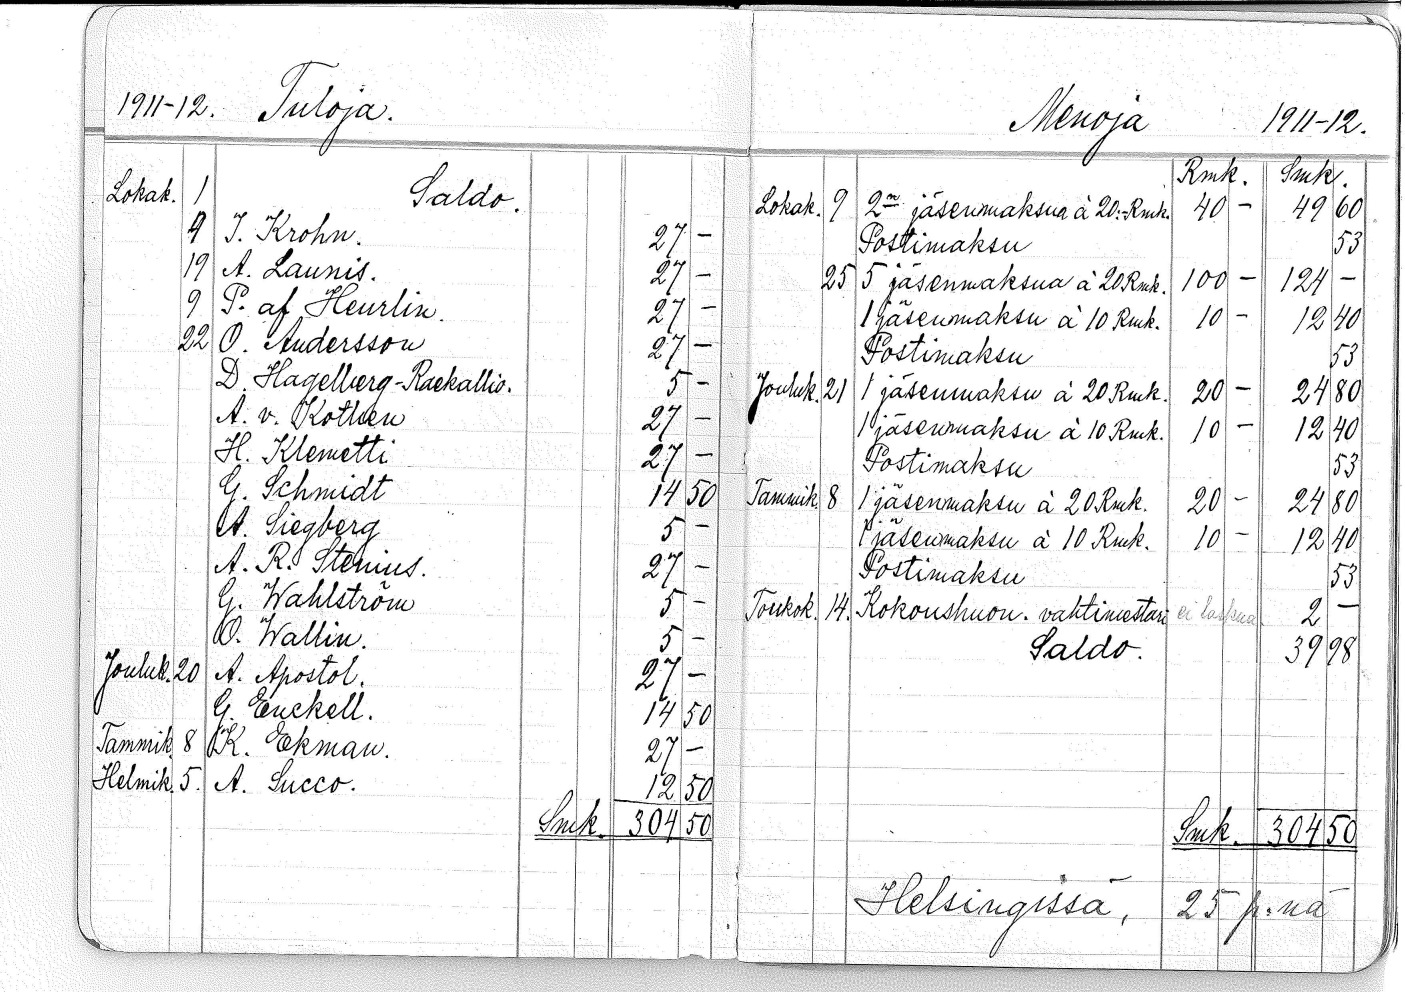 1911-12. Tuloja.
Lokak. 1 Saldo.
9 I. Krohn. 27 –
19 A. Launis. 27 –
9 P. af Heurlin. 27 –
22 O. Andersson 27 –
D. Hagelberg-Raekallio. 5 –
A. v. Kothen 27 –
H. Klemetti 27 –
G. Schmidt 14 50
A. Siegberg 5 –
A. R. Stenius. 27 –
G. Wahlström 5 –
O. Wallin. 5 –
Jouluk. 20 A. Apostol. 27 –
G. Enckell. 14 50
Tammik. 8 K. Ekman. 27 –
Helmik. 5. A. Succo. 12 50
Smk. 304 50
Menoja 1911-12.
Rmk. Smk.
Lokak. 9 2 jäsenmaksua à 20:-Rmk. 40 – 49 60
Postimaksu 53
25 5 jäsenmaksua à 20 Rmk. 100 – 124 –
1 jäsenmaksu à 10 Rmk. 10 – 12 40
Postimaksu 53
Jouluk. 21 1 jäsenmaksu à 20 Rmk. 20 – 24 80
1 jäsenmaksu à 10 Rmk. 10 – 12 40
Postimaksu 53
Tammik. 8 1 jäsenmaksu à 20 Rmk. 20 – 24 80
1 jäsenmaksu à 10 Rmk. 10 – 12 40
Postimaksu 53
Toukok. 14. Kokoushuon. vahtimestari ei laskua. 2 –
Saldo. 39 98
Smk. 304 50
Helsingissä, 25 p:nä